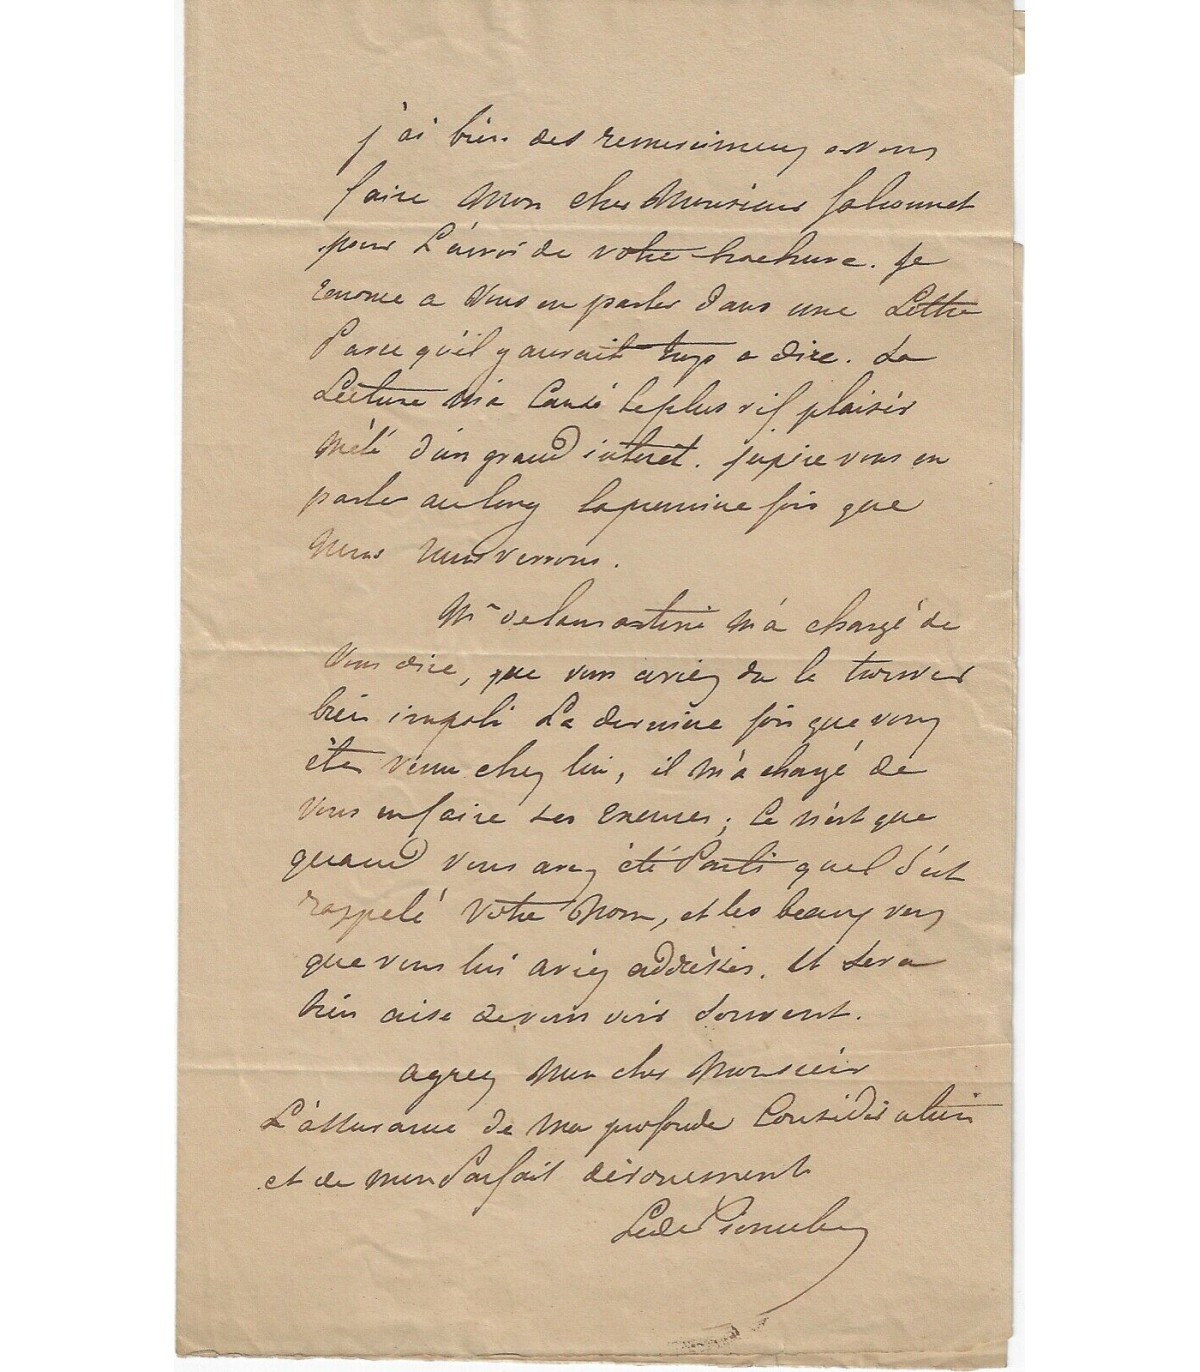 j'ai bien des remerciments a vous
faire Mon cher Monsieur falconnet
pour L'envoi de votre brochure. Je
renonce a Vous en parler dans une Lettre
Parce qu'il y aurait trop a dire. La
Lecture m'a Causé le plus vif plaisir
mêlé d'un grand interet. j'espère vous en
parler au long la première fois que
Nous nous verrons.
Mr de lamartine m'a chargé de
Vous dire, que vous aviez du le trouver
bien impoli La dernière fois que vous
êtes venu chez lui, il m'a chargé de
Vous en faire ses excuses; Ce n'est que
quand vous avez été Parti qu'il s'est
rappelé Votre Nom, et les beaux vers
que vous lui aviez addressés. Il sera
bien aise de vous voir souvent.
agreez Mon cher Monsieur
L'assurance de Ma profonde Considération
et de mon Parfait dévouement